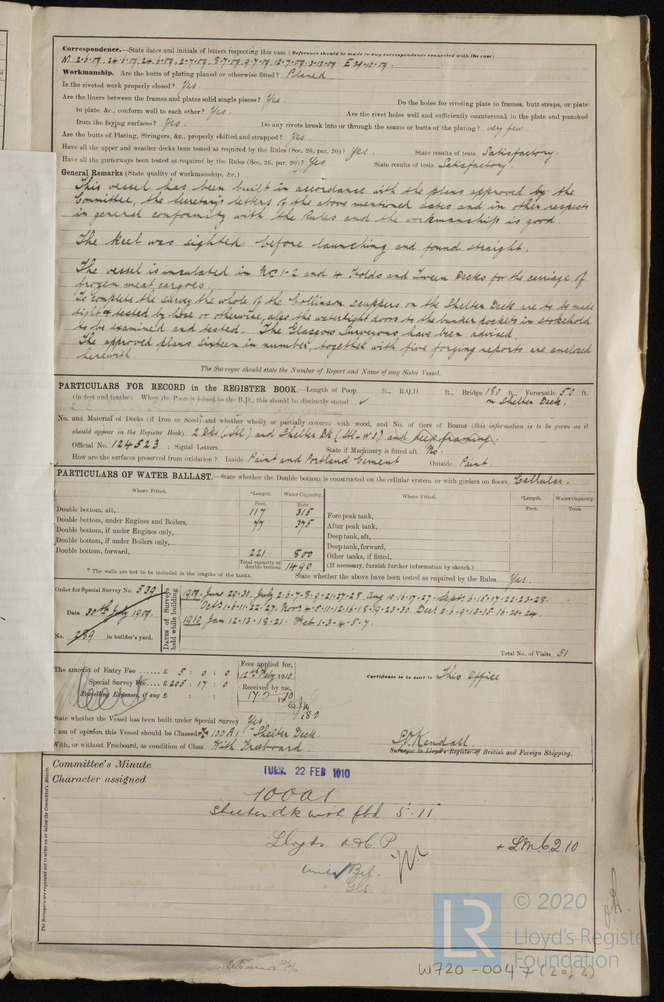 Correspondence.—State dates and initials of letters respecting this case (Reference should be made in any correspondence connected with the case)
Workmanship. Are the butts of plating planed or otherwise fitted? Planed
Is the riveted work properly closed? Yes
Are the liners between the frames and plates solid single pieces? Yes. Do the holes for riveting plate to frames, butt straps, or plate
to plate, &c., conform well to each other? Yes. Are the rivet holes well and sufficiently countersunk in the plate and punched
from the faying surfaces? Yes. Do any rivets break into or through the seams or butts of the plating? very few.
Are the butts of Plating, Stringers, &c., properly shifted and strapped? Yes.
Have all the upper and weather decks been tested as required by the Rules (Sec. 26, par. 20)? Yes. State results of tests Satisfactory.
Have all the gutterways been tested as required by the Rules (Sec. 26, par. 20)? Yes State results of tests Satisfactory
General Remarks (State quality of workmanship, &c.)
This vessel has been built in accordance with the plans approved by the
Committee, the Secretary's letters of the above mentioned dates and in other respects
in general conformity with the Rules and the workmanship is good.
The keel was sighted before launching and found straight.
The vessel is insulated in Nos. 1-2 and 4 Holds and Tween Decks for the carriage of
frozen meat cargoes.
To complete the survey the whole of the Collinson scuppers on the Shelter Deck are to be made
tight & tested by hose or otherwise, also the watertight doors to the bunker pockets in stokehold
to be examined and tested. The Glasgow Surveyors have been advised.
The approved plans sixteen in number, together with five forging reports are enclosed
herewith.
The Surveyor should state the Number of Report and Name of any Sister Vessel.
PARTICULARS FOR RECORD in the REGISTER BOOK.—Length of Poop ft., R.Q.D. ft., Bridge 180 ft., Forecastle 50 ft.
(in feet and tenths). When the Poop is joined to the B.D., this should be distinctly stated ✓ on Shelter Deck.
No. and Material of Decks (if Iron or Steel) and whether wholly or partially covered with wood, and No. of tiers of Beams (this information is to be given as it
should appear in the Register Book) 2 Dks (Stl) and Shelter Dk (Stl. W.S.) and deep framing.
Official No. 124523; Signal Letters State if Machinery is fitted aft No.
How are the surfaces preserved from oxidation? Inside Paint and Portland Cement Outside Paint.
PARTICULARS OF WATER BALLAST.—State whether the Double bottom is constructed on the cellular system or with girders on floors Cellular.
Where Fitted. *Length. Water Capacity. Where Fitted. *Length. Water Capacity.
Feet. Tons. Feet. Tons.
Double bottom, aft, 117 315 Fore peak tank,
Double bottom, under Engines and Boilers, 77 375 After peak tank,
Double bottom, if under Engines only, Deep tank, aft,
Double bottom, if under Boilers only, Deep tank, forward,
Double bottom, forward, 221 800 Other tanks, if fitted,
Total capacity of double bottom 1490 (If necessary, furnish further information by sketch.)
* The wells are not to be included in the lengths of the tanks. State whether the above have been tested as required by the Rules Yes.
Order for Special Survey No. 539
Date 30th July 1909.
No. 289 in builder's yard.
DATES of Surveys held while building
1909. June 29-30, July 2-6-7-8-9-21-27-28 Aug 10-16-17-27- Sept 6-15-17-22-23-28-
1910 Jan 12-13-18-21- Feb 1-3-4-5-7.
Total No. of Visits 51
The amount of Entry Fee ...... £ 5 : 0 : 0 Fees applied for, 12th Feby 1910 Certificate to be sent to This Office
Special Survey Fee.... £ 205 : 17 : 0 Received by me,
Travelling Expenses, if any £ : : 17.2.1910
State whether the Vessel has been built under Special Survey Yes.
I am of opinion this Vessel should be Classed ✠ 100 A1 "Shelter Deck"
With, or without Freeboard, as condition of Class With Freeboard. Kendall.
Surveyor to Lloyd's Register of British and Foreign Shipping.
Committee's Minute TUES. 22 FEB 1910
Character assigned 100A1
Shelter dk with fbd 5.11
Lloyds A & C P + LMC 2.10
The Surveyors are requested not to write on or below the Committee's Minute.
© 2020
Lloyd's Register
Foundation
LR
W720-0047 (2 of 2)